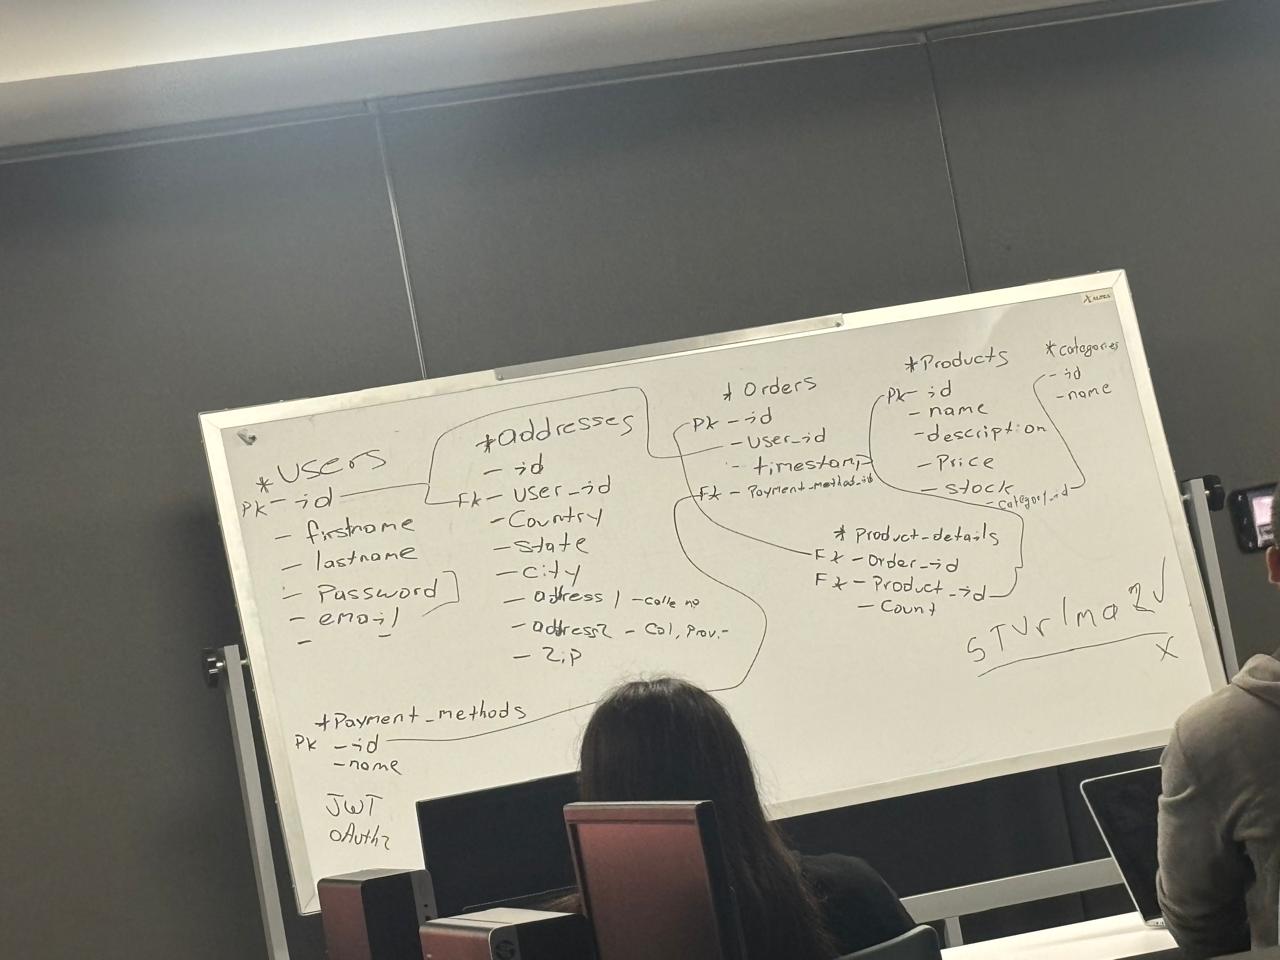 * Users
PK - id
- firstname
- lastname
- Password
- email
-
* addresses
- id
FK - user_id
- Country
- state
- city
- address 1 - calle no
- address2 - Col, Prov. -
- Zip
* Orders
PK - id
- user_id
- timestamp
FK - Payment_method_id
* Products
PK - id
- name
- description
- Price
- stock
- category_id
* categories
- id
- name
* Product_details
FK - Order_id
FK - Product_id
- Count
* Payment_methods
PK - id
- name
JWT
OAuth2
X